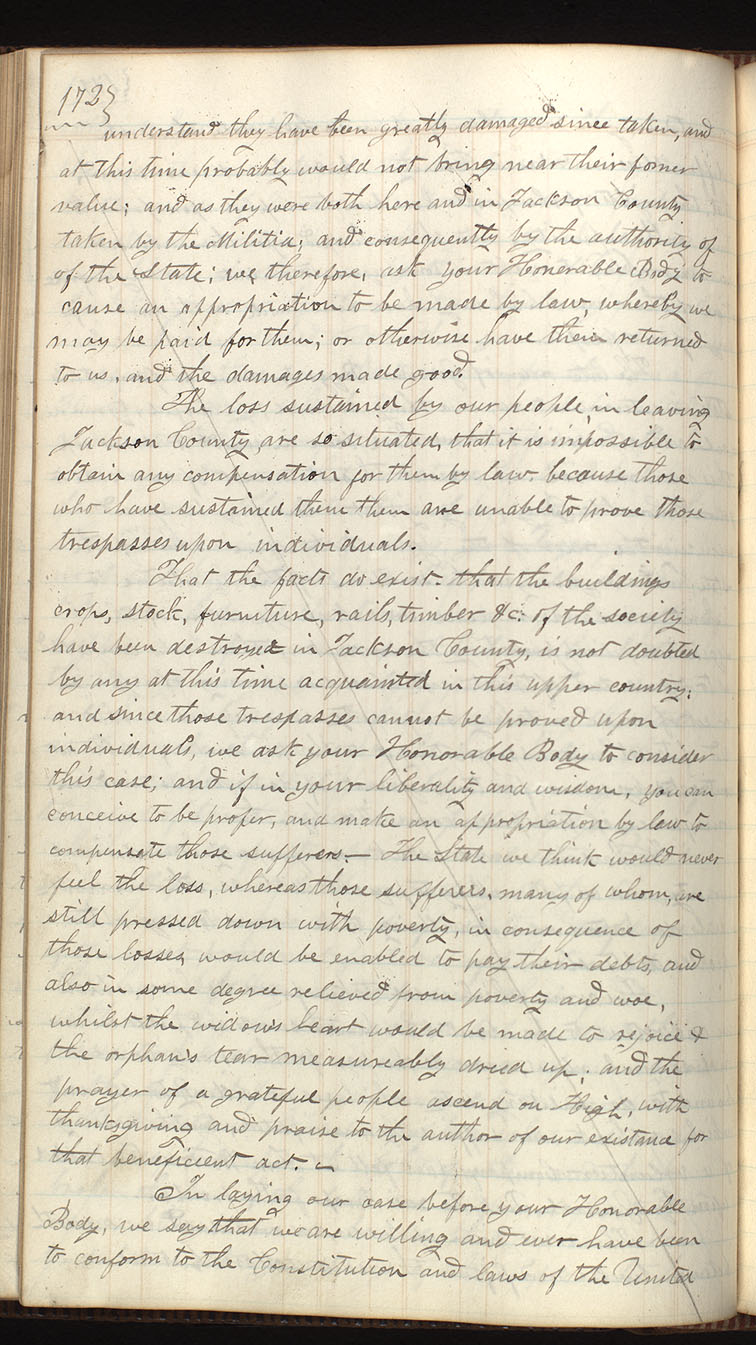 172}
understand they have been greatly damaged since taken, and
at this time probably would not bring near their former
value; and as they were both here and in Jackson County
taken by the Militia, and consequently by the authority of
of the State; we, therefore, ask your Honerable Body to
cause an appropriation to be made by law, whereby we
may be paid for them; or otherwise have them returned
to us, and the damages made good.
The loss sustained by our people, in leaving
Jackson County, are so situated, that it is impossible to
obtain any compensation for them by law because those
who have sustained them them are unable to prove those
trespasses upon individuals.
That the facts do exist. that the buildings
crops, stock, furniture, rails, timber &c. of the society
have been destroyed in Jackson County, is not doubted
by any at this time acquainted in this upper country;
and since those trespasses cannot be proved upon
individuals, we ask your Honorable Body to consider
this case; and if in your liberality and wisdom, you can
conceive to be proper, and make an appropriation by law to
compensate those sufferers.— The State we think would never
feel the loss, whereas those sufferers, many of whom, are
still pressed down with poverty, in consequence of
those losses, would be enabled to pay their debts, and
also in some degree relieved from poverty and woe,
whilst the widow's heart would be made to rejoice &
the orphan's tear measureably dried up; and the
prayer of a grateful people ascend on High, with
thanksgiving and praise to the author of our existance for
that beneficient act. ~
In laying our case before your Honorable
Body, we say that we are willing and ever have been
to conform to the Constitution and laws of the United